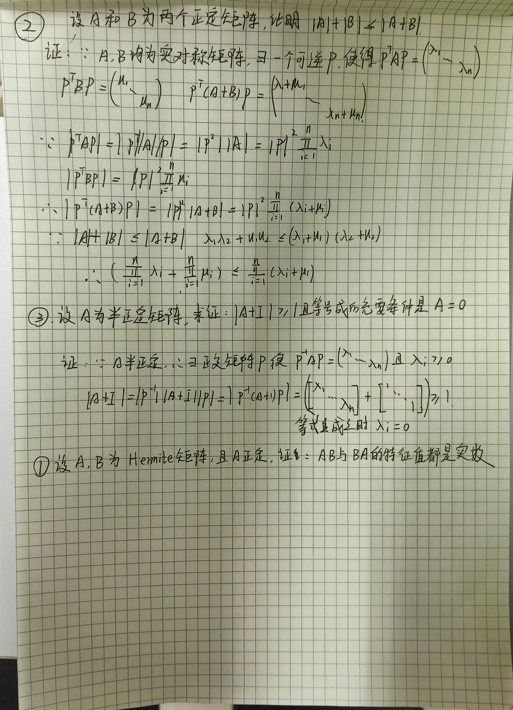 ② 设A和B为两个正定矩阵,证明 |A|+|B|≤|A+B|.
证:∵ A,B均为实对称矩阵,∃一个可逆P,使得 PᵀAP=(λ₁ ⋱ λₙ)
PᵀBP=(μ₁ ⋱ μₙ) Pᵀ(A+B)P=(λ₁+μ₁ ⋱ λₙ+μₙ)
∵ |PᵀAP|=|Pᵀ||A||P|=|P²||A|=|P|²∏ⁿᵢ₌₁λᵢ
|PᵀBP|=|P|²∏ⁿᵢ₌₁μᵢ
∴ |Pᵀ(A+B)P|=|P|²|A+B|=|P|²∏ⁿᵢ₌₁(λᵢ+μᵢ)
∵ |A|+|B|≤|A+B| λ₁λ₂+μ₁μ₂≤(λ₁+μ₁)(λ₂+μ₂)
∴ (∏ⁿᵢ₌₁λᵢ+∏ⁿᵢ₌₁μᵢ)≤∏ⁿᵢ₌₁(λᵢ+μᵢ)
③ 设A为半正定矩阵,求证:|A+I|≥1且等号成立的充要条件是A=0
证:∵ A半正定,∴∃正交矩阵P使 P⁻¹AP=(λ₁ ⋱ λₙ)且λᵢ≥0
|A+I|=|P⁻¹||A+I||P|=|P⁻¹(A+I)P|=([λ₁ ⋱ λₙ]+[1 ⋱ 1])≥1.
成立时 λᵢ=0
① 设A,B为Hermite矩阵,且A正定,证:AB与BA的特征值都是实数